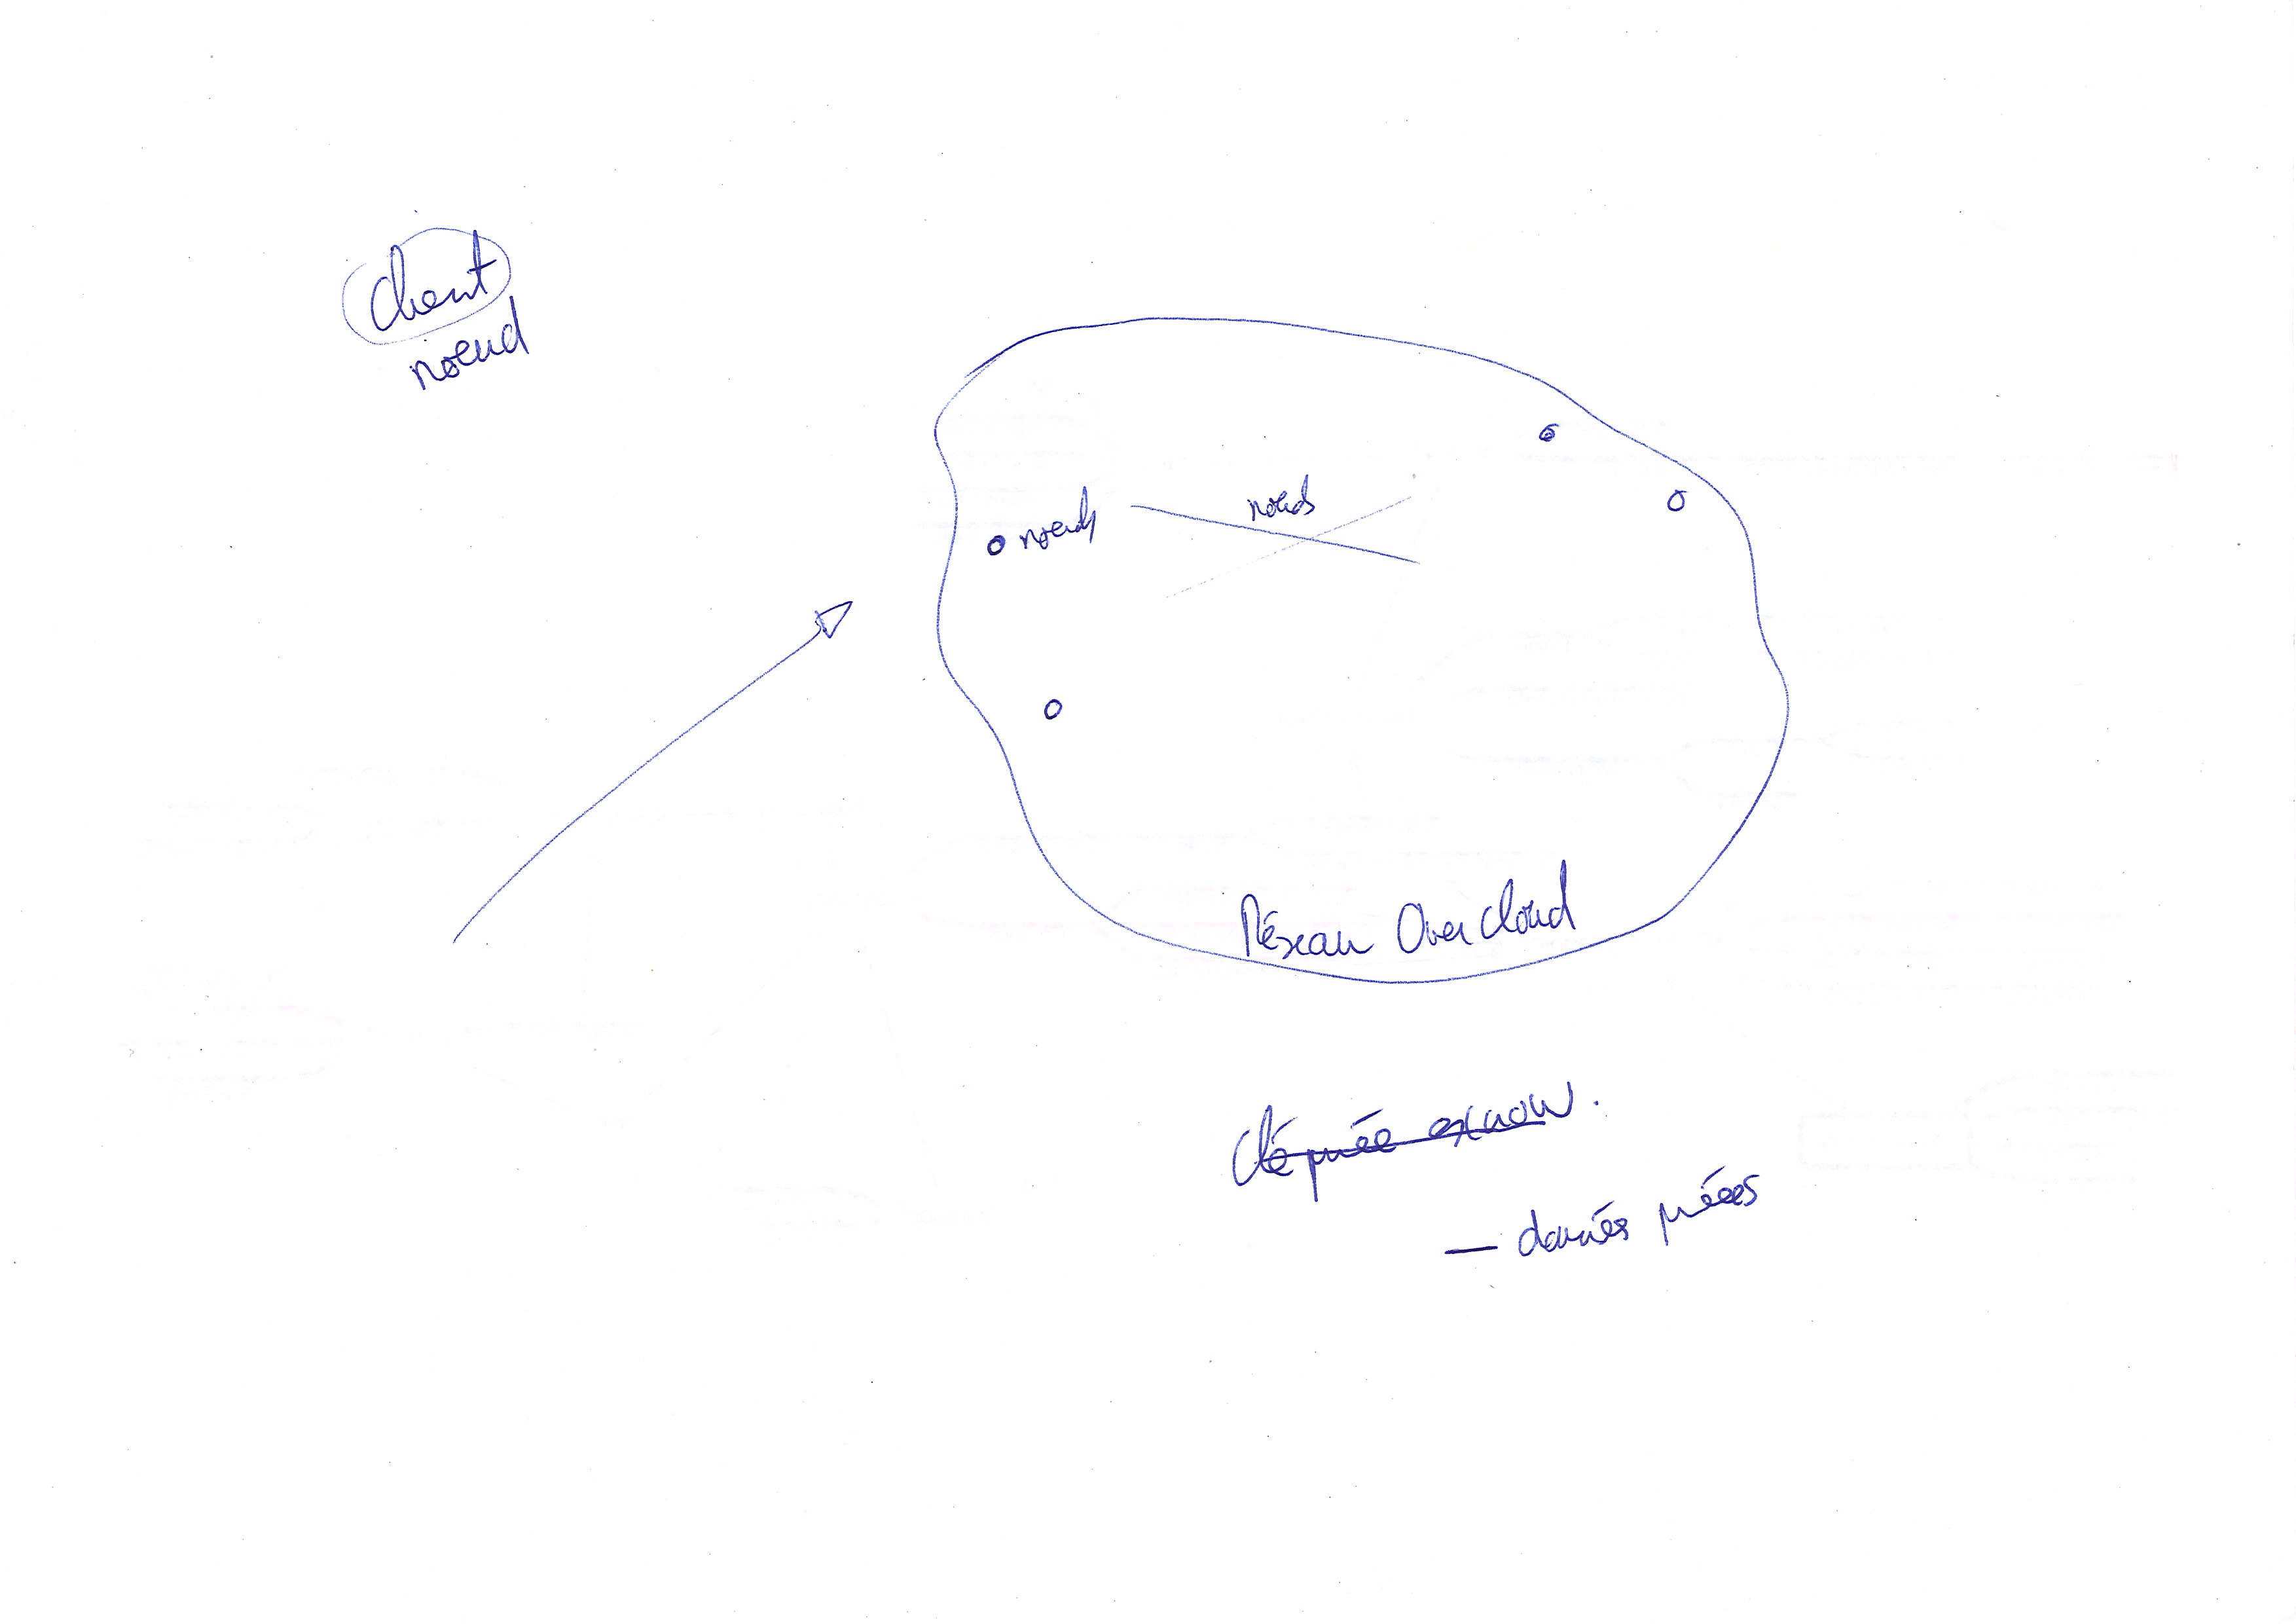 client
noeud
noeuds
noeuds
Réseau OverCloud
Clé privée
— données privées